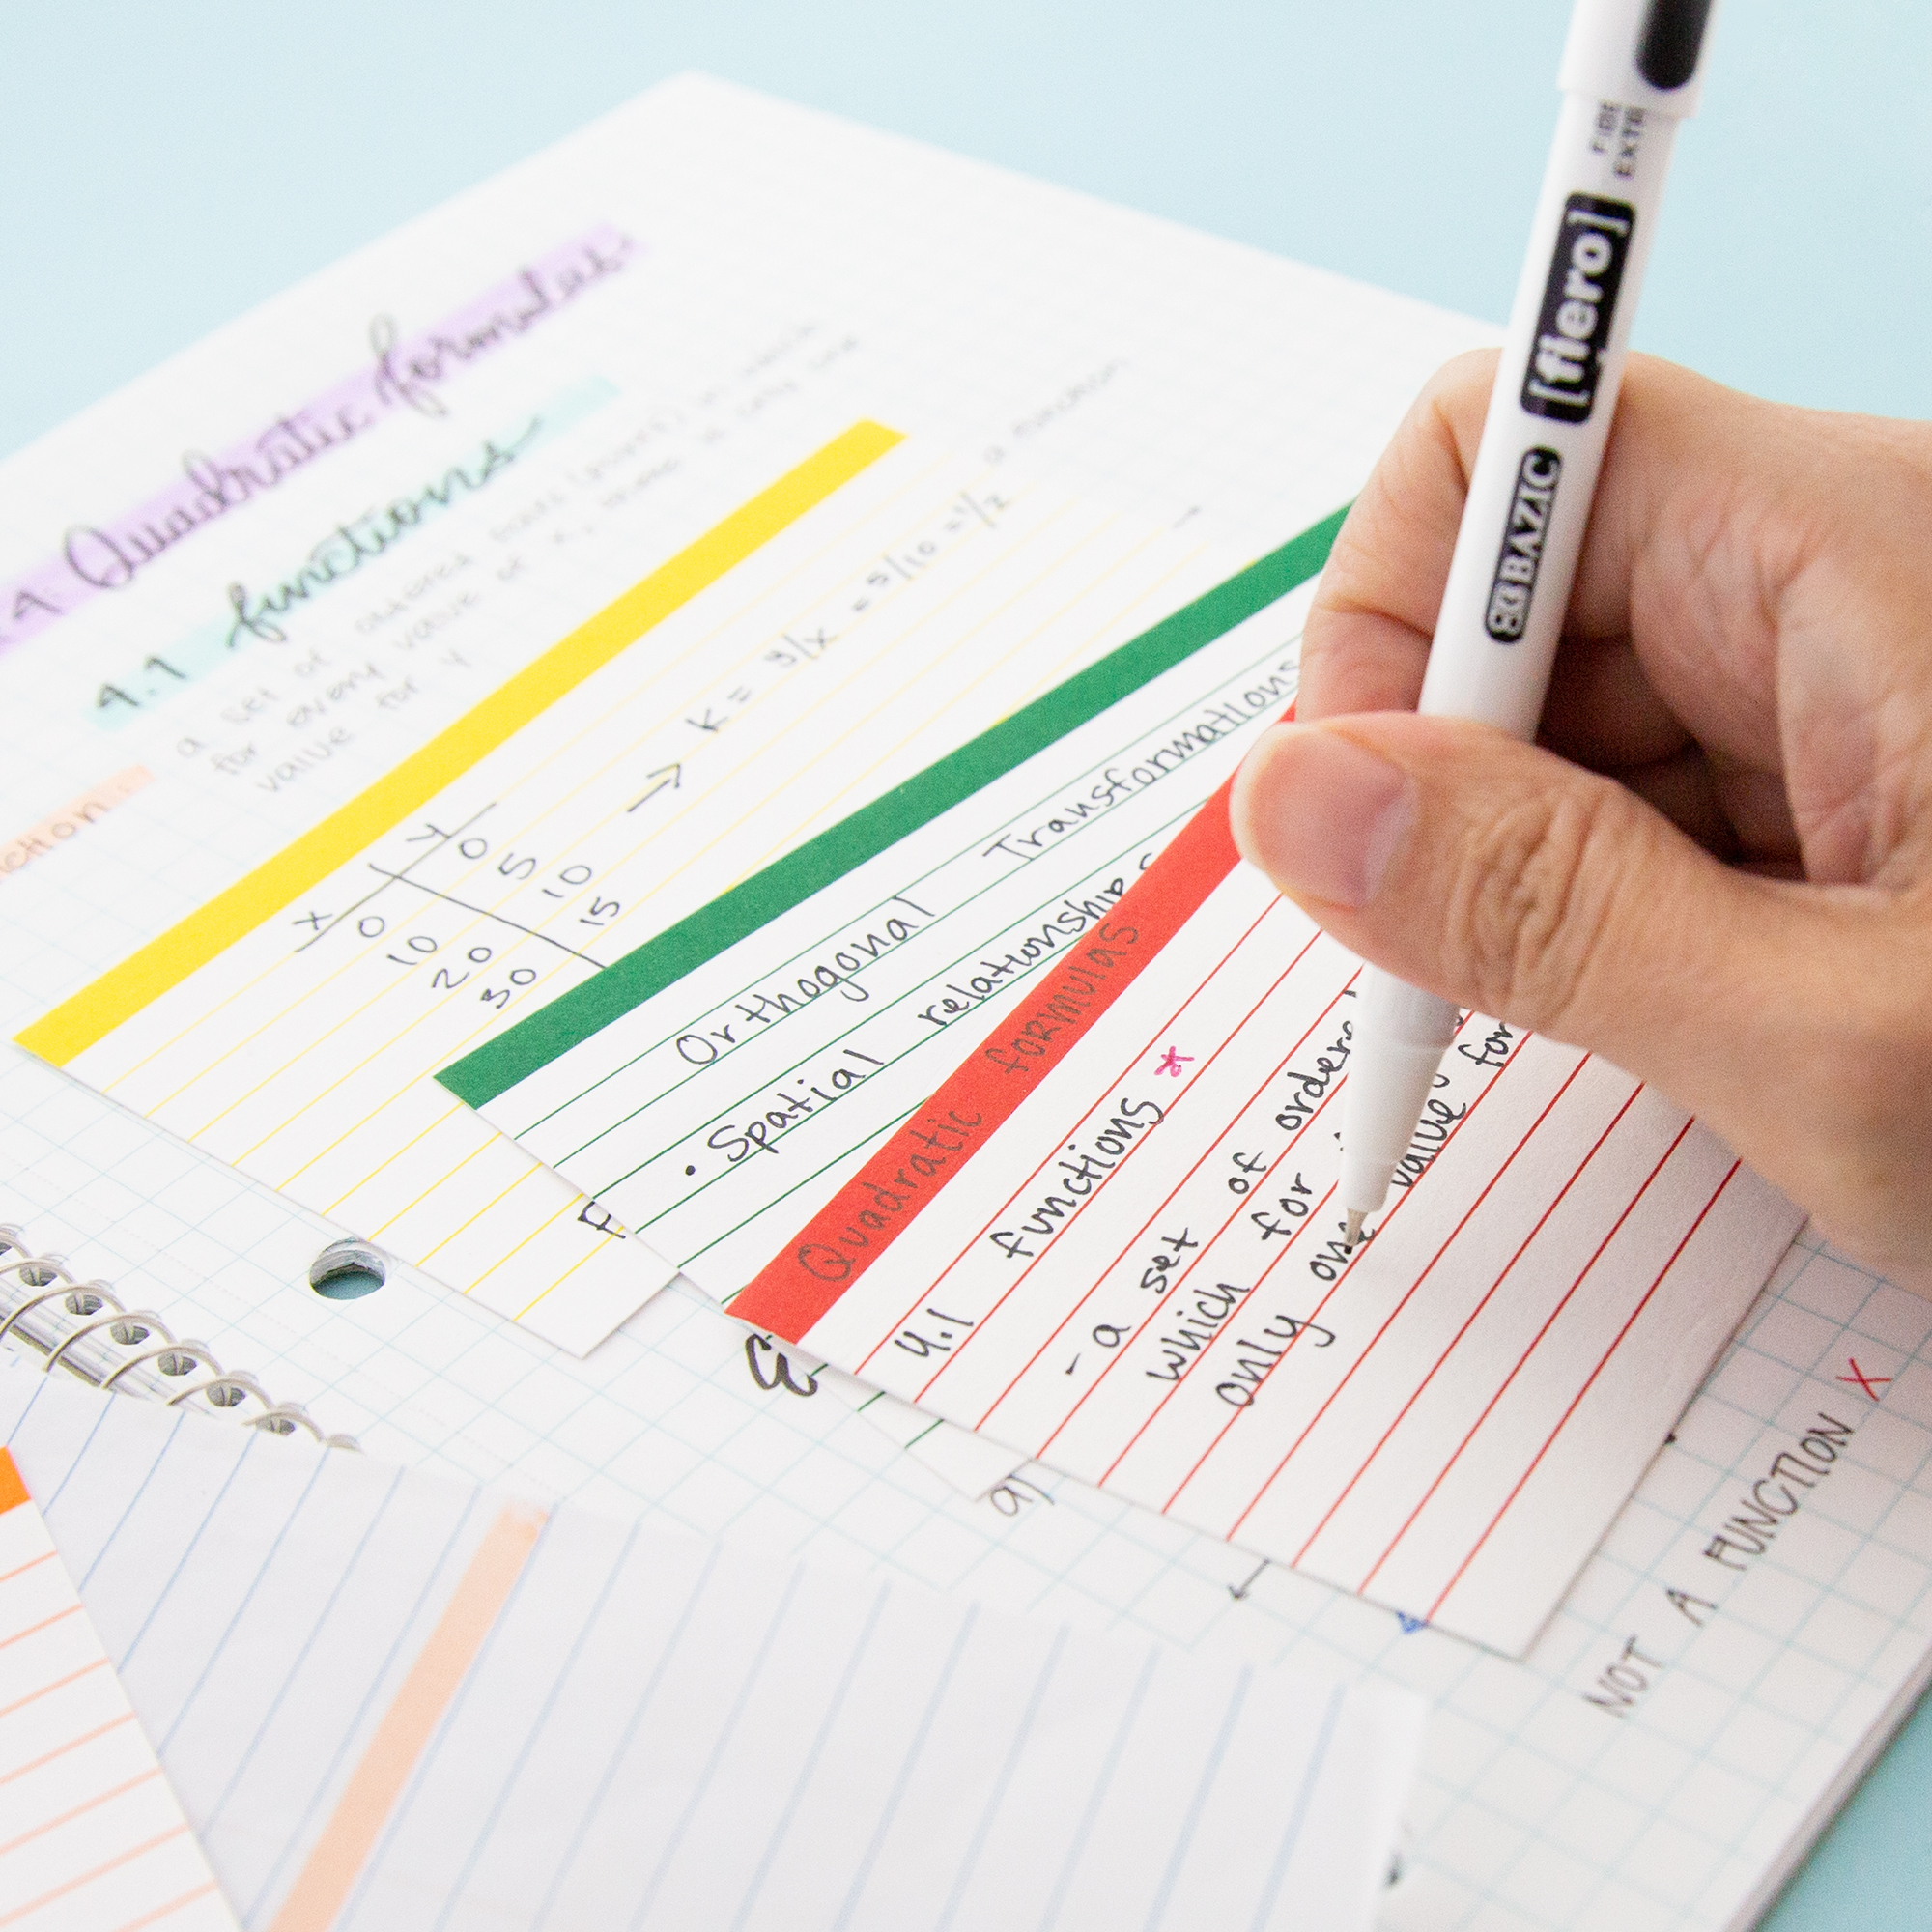 4. Quadratic formulas
4.1 functions
a set of ordered pairs (points) in which
for every value of x, there is only one
value for y
a function
x | y
0 0
10 5
20 10
30 15
→ K = y/x = 5/10 = 1/2
Orthogonal Transformations
• Spatial relationships
Quadratic formulas
4.1 functions *
- a set of ordere
which for
only one value for
a)
NOT A FUNCTION X
BAZIC [fiero]